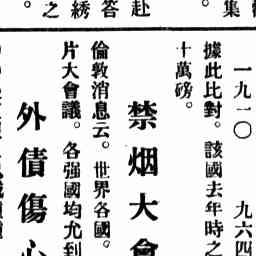 集
。
赴
答
綉
之
。
一九一〇　九六四
據此比對。該國去年時之
十萬磅。
禁烟大會
倫敦消息云。世界各國。
片大會議。各强國均允到
外債傷心